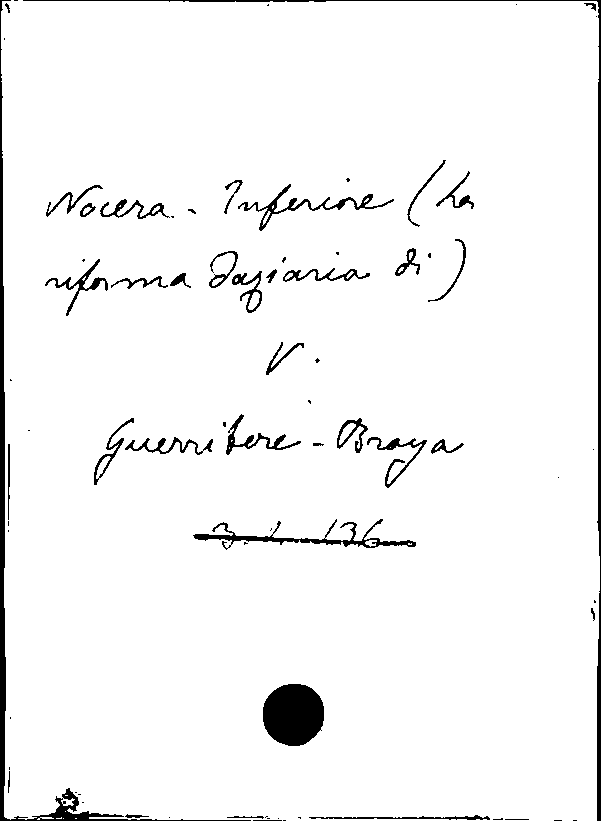 Nocera - Inferiore (La
riforma daziaria di)
V.
Guerritore - Braya
3. 1. 136